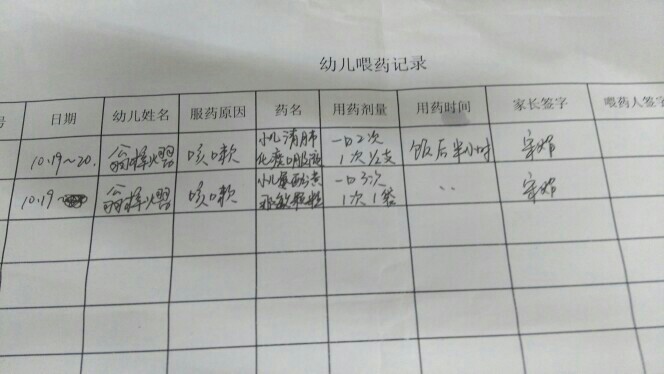 幼儿喂药记录
号 日期 幼儿姓名 服药原因 药名 用药剂量 用药时间 家长签字 喂药人签字
10.19~20. 翁 咳嗽 小儿清肺 一日2次 饭后半小时
化痰口服液 1次½支
10.19 翁 咳嗽 小儿氨酚黄 一日3次 〃
那敏颗粒 1次1袋